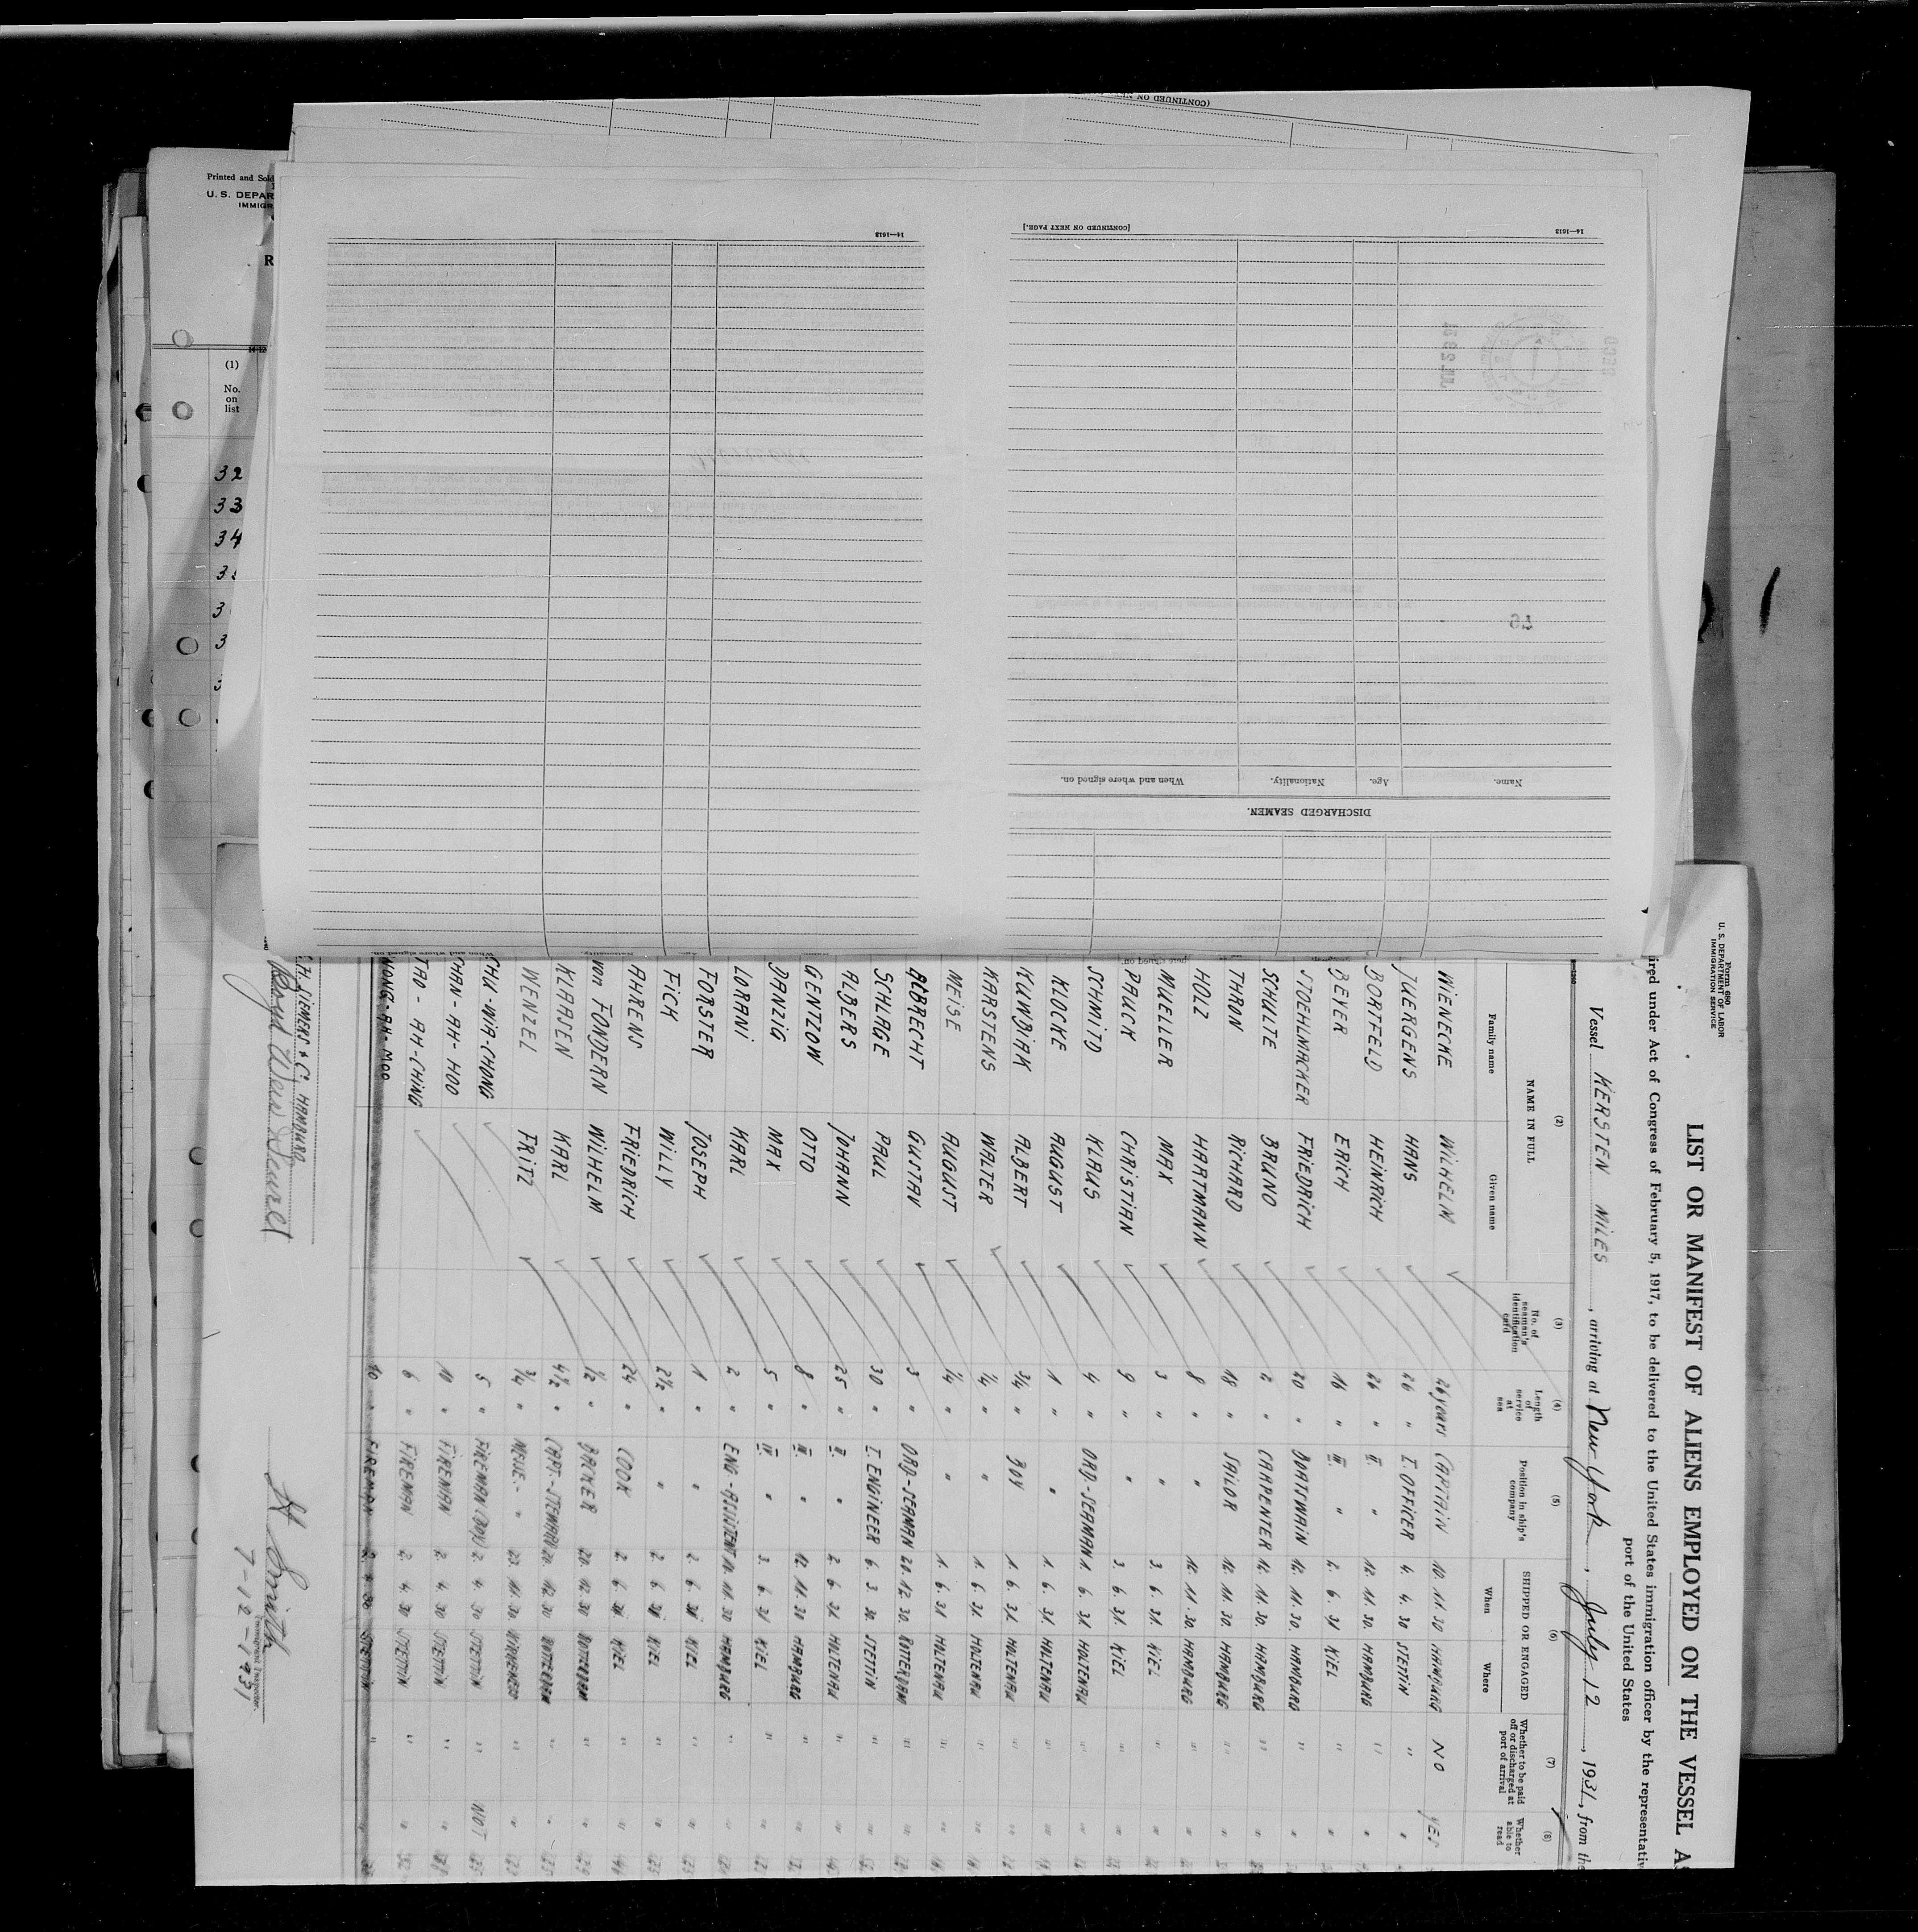 Form 680
U. S. DEPARTMENT OF LABOR
IMMIGRATION SERVICE
LIST OR MANIFEST OF ALIENS EMPLOYED ON THE VESSEL AS
ired under Act of Congress of February 5, 1917, to be delivered to the United States immigration officer by the representativ
port of the United States
Vessel KERSTEN MILES, arriving at New York, July 12, 1931, from the
(2) (3) (4) (5) (6) (7) (8)
NAME IN FULL
Family name Given name
No. of seaman's identification card
Length of service at sea
Position in ship's company
SHIPPED OR ENGAGED
When Where
Whether to be paid off or discharged at port of arrival
Whether able to read
WIENECKE WILHELM 26 years CAPTAIN 10. 11. 30 HAMBURG NO YES
JUERGENS HANS 26 " I. OFFICER 4. 4. 30 STETTIN " "
BORTFELD HEINRICH 26 " II. " 12. 11. 30. HAMBURG " "
BEYER ERICH 16 " III. " 2. 6. 31 KIEL " "
STOEHLMACKER FRIEDRICH 20 " BOATSWAIN 12. 11. 30. HAMBURG " "
SCHULTE BRUNO 2 " CARPENTER 12. 11. 30. HAMBURG " "
THRON RICHARD 18 " SAILOR 12. 11. 30. HAMBURG " "
HOLZ HARTMANN 8 " " 12. 11. 30. HAMBURG " "
MUELLER MAX 3 " " 3. 6. 31. KIEL " "
PAUCK CHRISTIAN 9 " " 3. 6. 31. KIEL " "
SCHMITD KLAUS 4 " ORD-SEAMAN 1. 6. 31 HOLTENAU " "
KLOCKE AUGUST 1 " " 1. 6. 31. HOLTENAU " "
KUNBIAK ALBERT 3/4 " BOY 1. 6. 31. HOLTENAU " "
KARSTENS WALTER 1/4 " " 1. 6. 31. HOLTENAU " "
MEISE AUGUST 1/4 " " 1. 6. 31 HOLTENAU " "
ALBRECHT GUSTAV 3 " ORD-SEAMAN 20. 12. 30. ROTTERDAM " "
SCHLAGE PAUL 30 " I. ENGINEER 6. 3. 30. STETTIN " "
ALBERS JOHANN 25 " II. " 2. 6. 31 HOLTENAU " "
GENTZOW OTTO 8 " III. " 12. 11. 30 HAMBURG " "
DANZIG MAX 5 " IV. " 3. 6. 31 KIEL " "
LORANI KARL 2 " ENG-ASSISTENT 10. 11. 30 HAMBURG " "
FORSTER JOSEPH 1 " " 2. 6. 31 KIEL " "
FICK WILLY 2 1/2 " " 2. 6. 31 KIEL " "
AHRENS FRIEDRICH 24 " COOK 2. 6. 31 KIEL " "
von FONDERN WILHELM 1/2 " BACKER 20. 12. 30 ROTTERDAM " "
KLAASEN KARL 4 1/2 " CAPT-STEWARD 20. 12. 30 ROTTERDAM " "
WENZEL FRITZ 3/4 " MESSE- " 23. 11. 30. " "
CHU-WIA-CHONG 5 " FIREMAN (BOY) 2. 4. 30 STETTIN " NOT
CHAN-AH-HOO 10 " FIREMAN 2. 4. 30 STETTIN " "
TAO-AH-CHING 6 " FIREMAN 2. 4. 30 STETTIN " "
WONG-AH-MOO 10 " FIREMAN 2. 4. 30 STETTIN " "
C.H. SIEMERS & Co. HAMBURG
H Smith
Immigrant Inspector.
7-12-1931
Printed and Sold
U. S. DEPAR
IMMIGR
(1)
No. on list
32
33
34
(CONTINUED ON NEXT
[CONTINUED ON NEXT PAGE.]
14—1613
14—1613
DISCHARGED SEAMEN.
Name. Age. Nationality. When and where signed on.
46